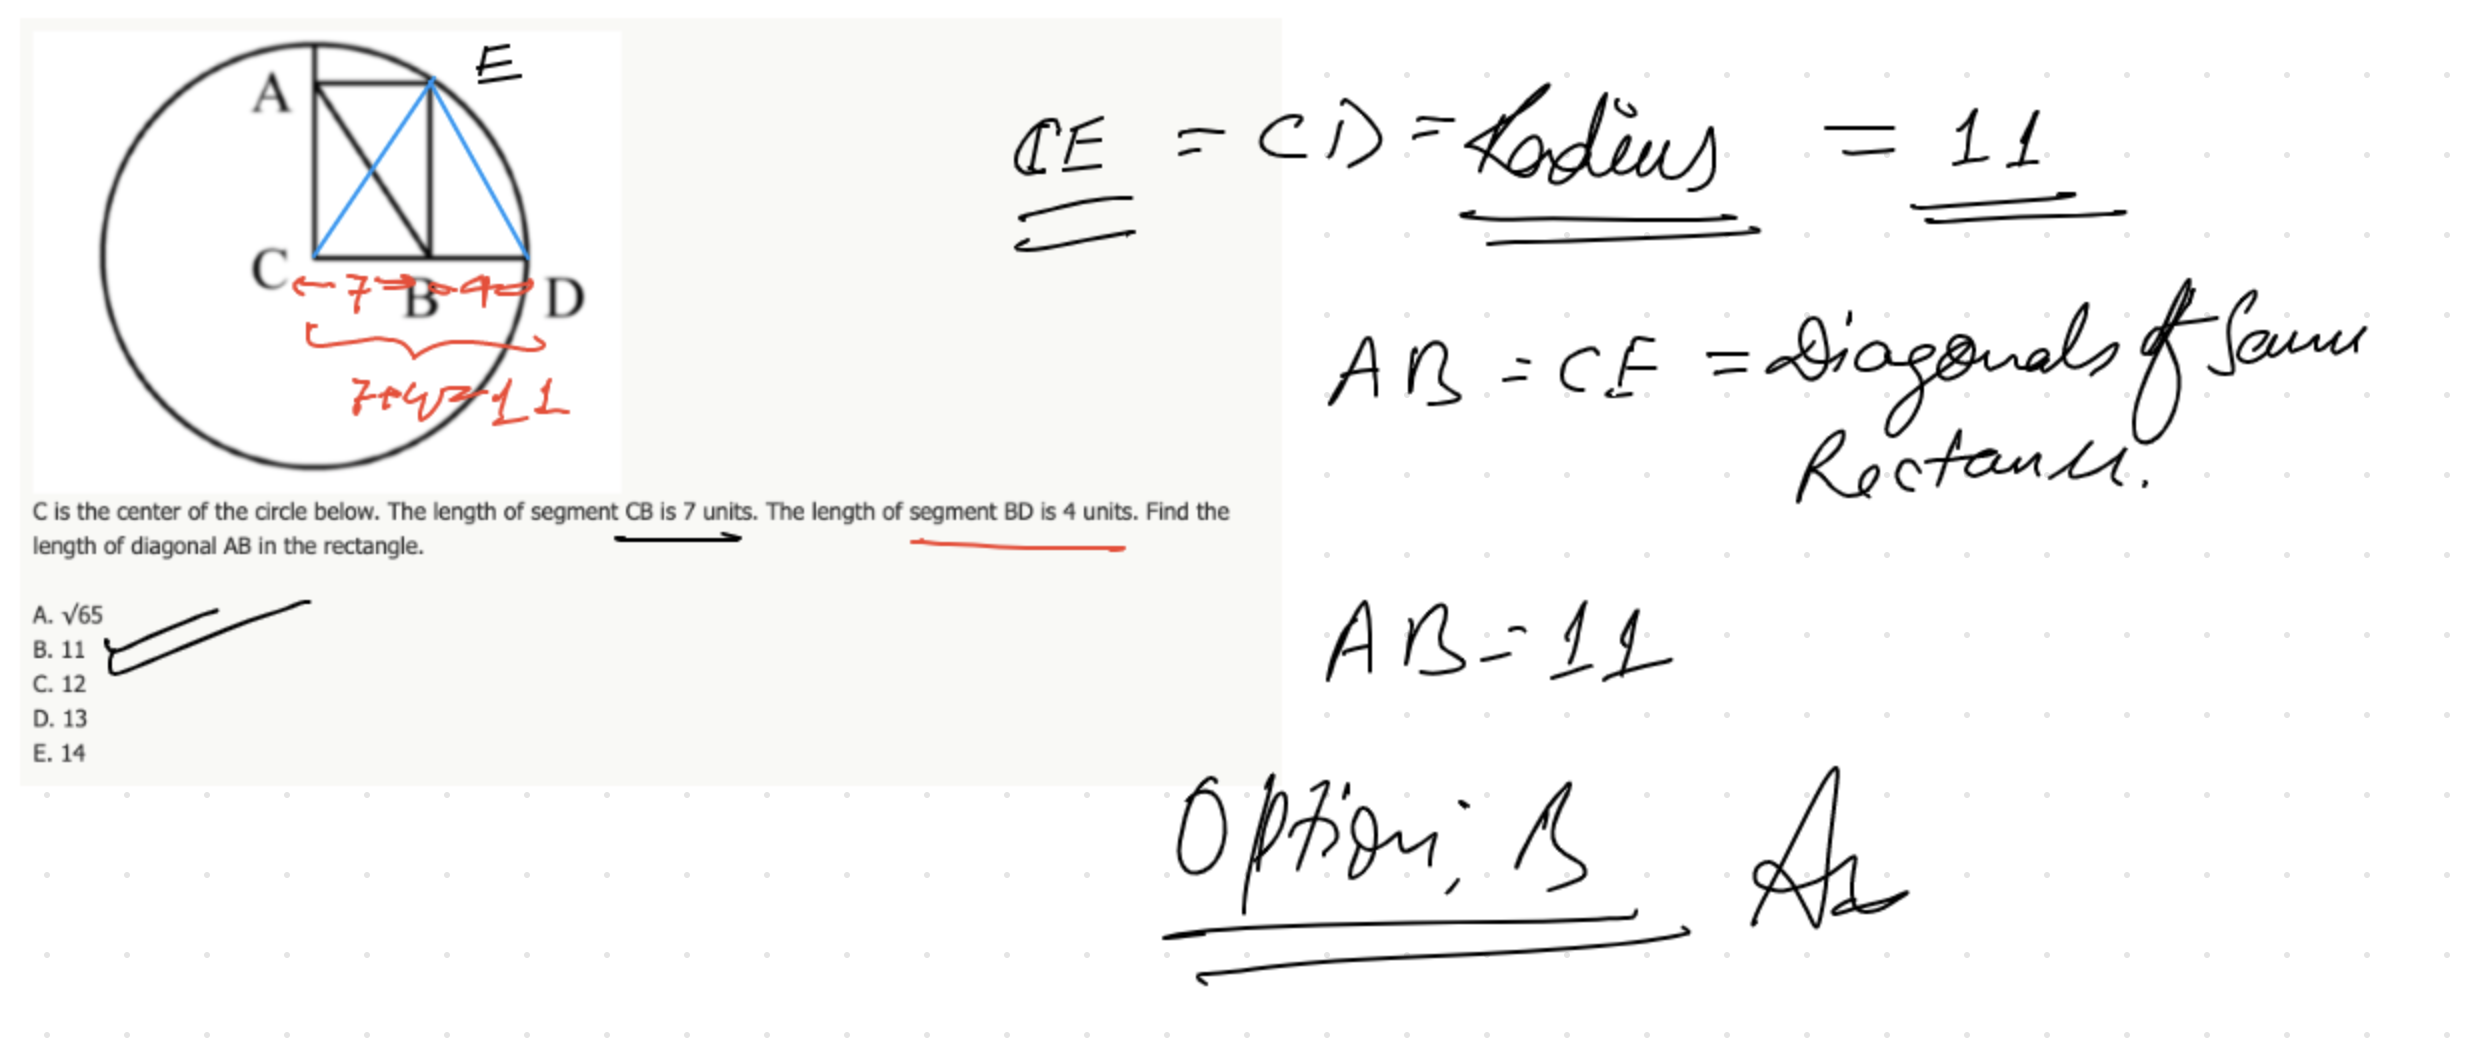 E
A
C
B
D
7
4
7+4=11
C is the center of the circle below. The length of segment CB is 7 units. The length of segment BD is 4 units. Find the
length of diagonal AB in the rectangle.
A. √65
B. 11
C. 12
D. 13
E. 14
CE = CD = Radius = 11
AB = CE = Diagonals of Same
AB = 11
Option; B